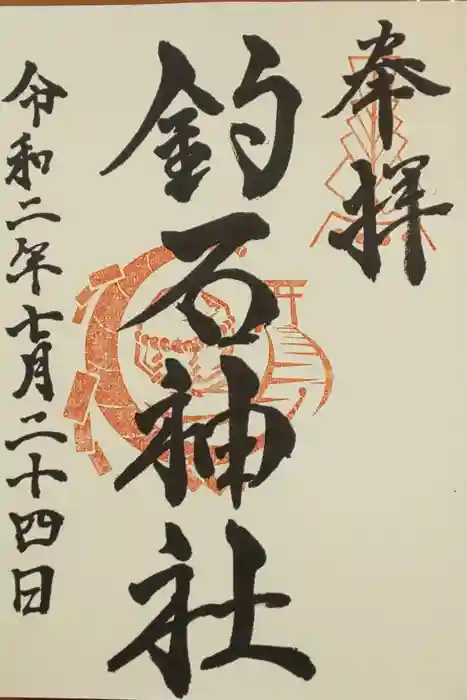 奉拝
釣石神社
令和二年七月二十四日